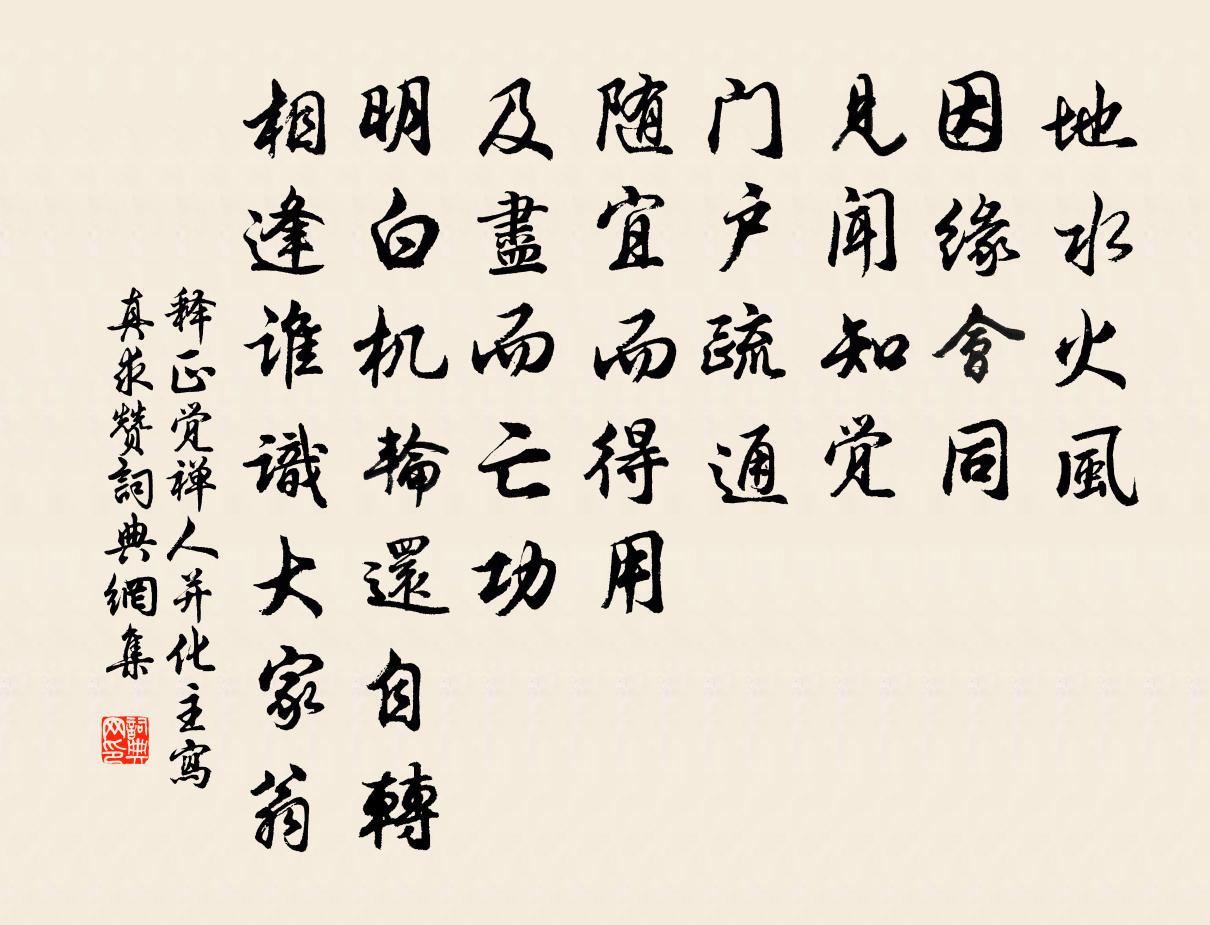 地水火風
因緣會同
見聞知觉
门户疏通
随宜而得用
及盡而亡功
明白机輪還自轉
相逢谁識大家翁
释正觉禅人并化主寫
真求赞詞典網集
詞典
网印